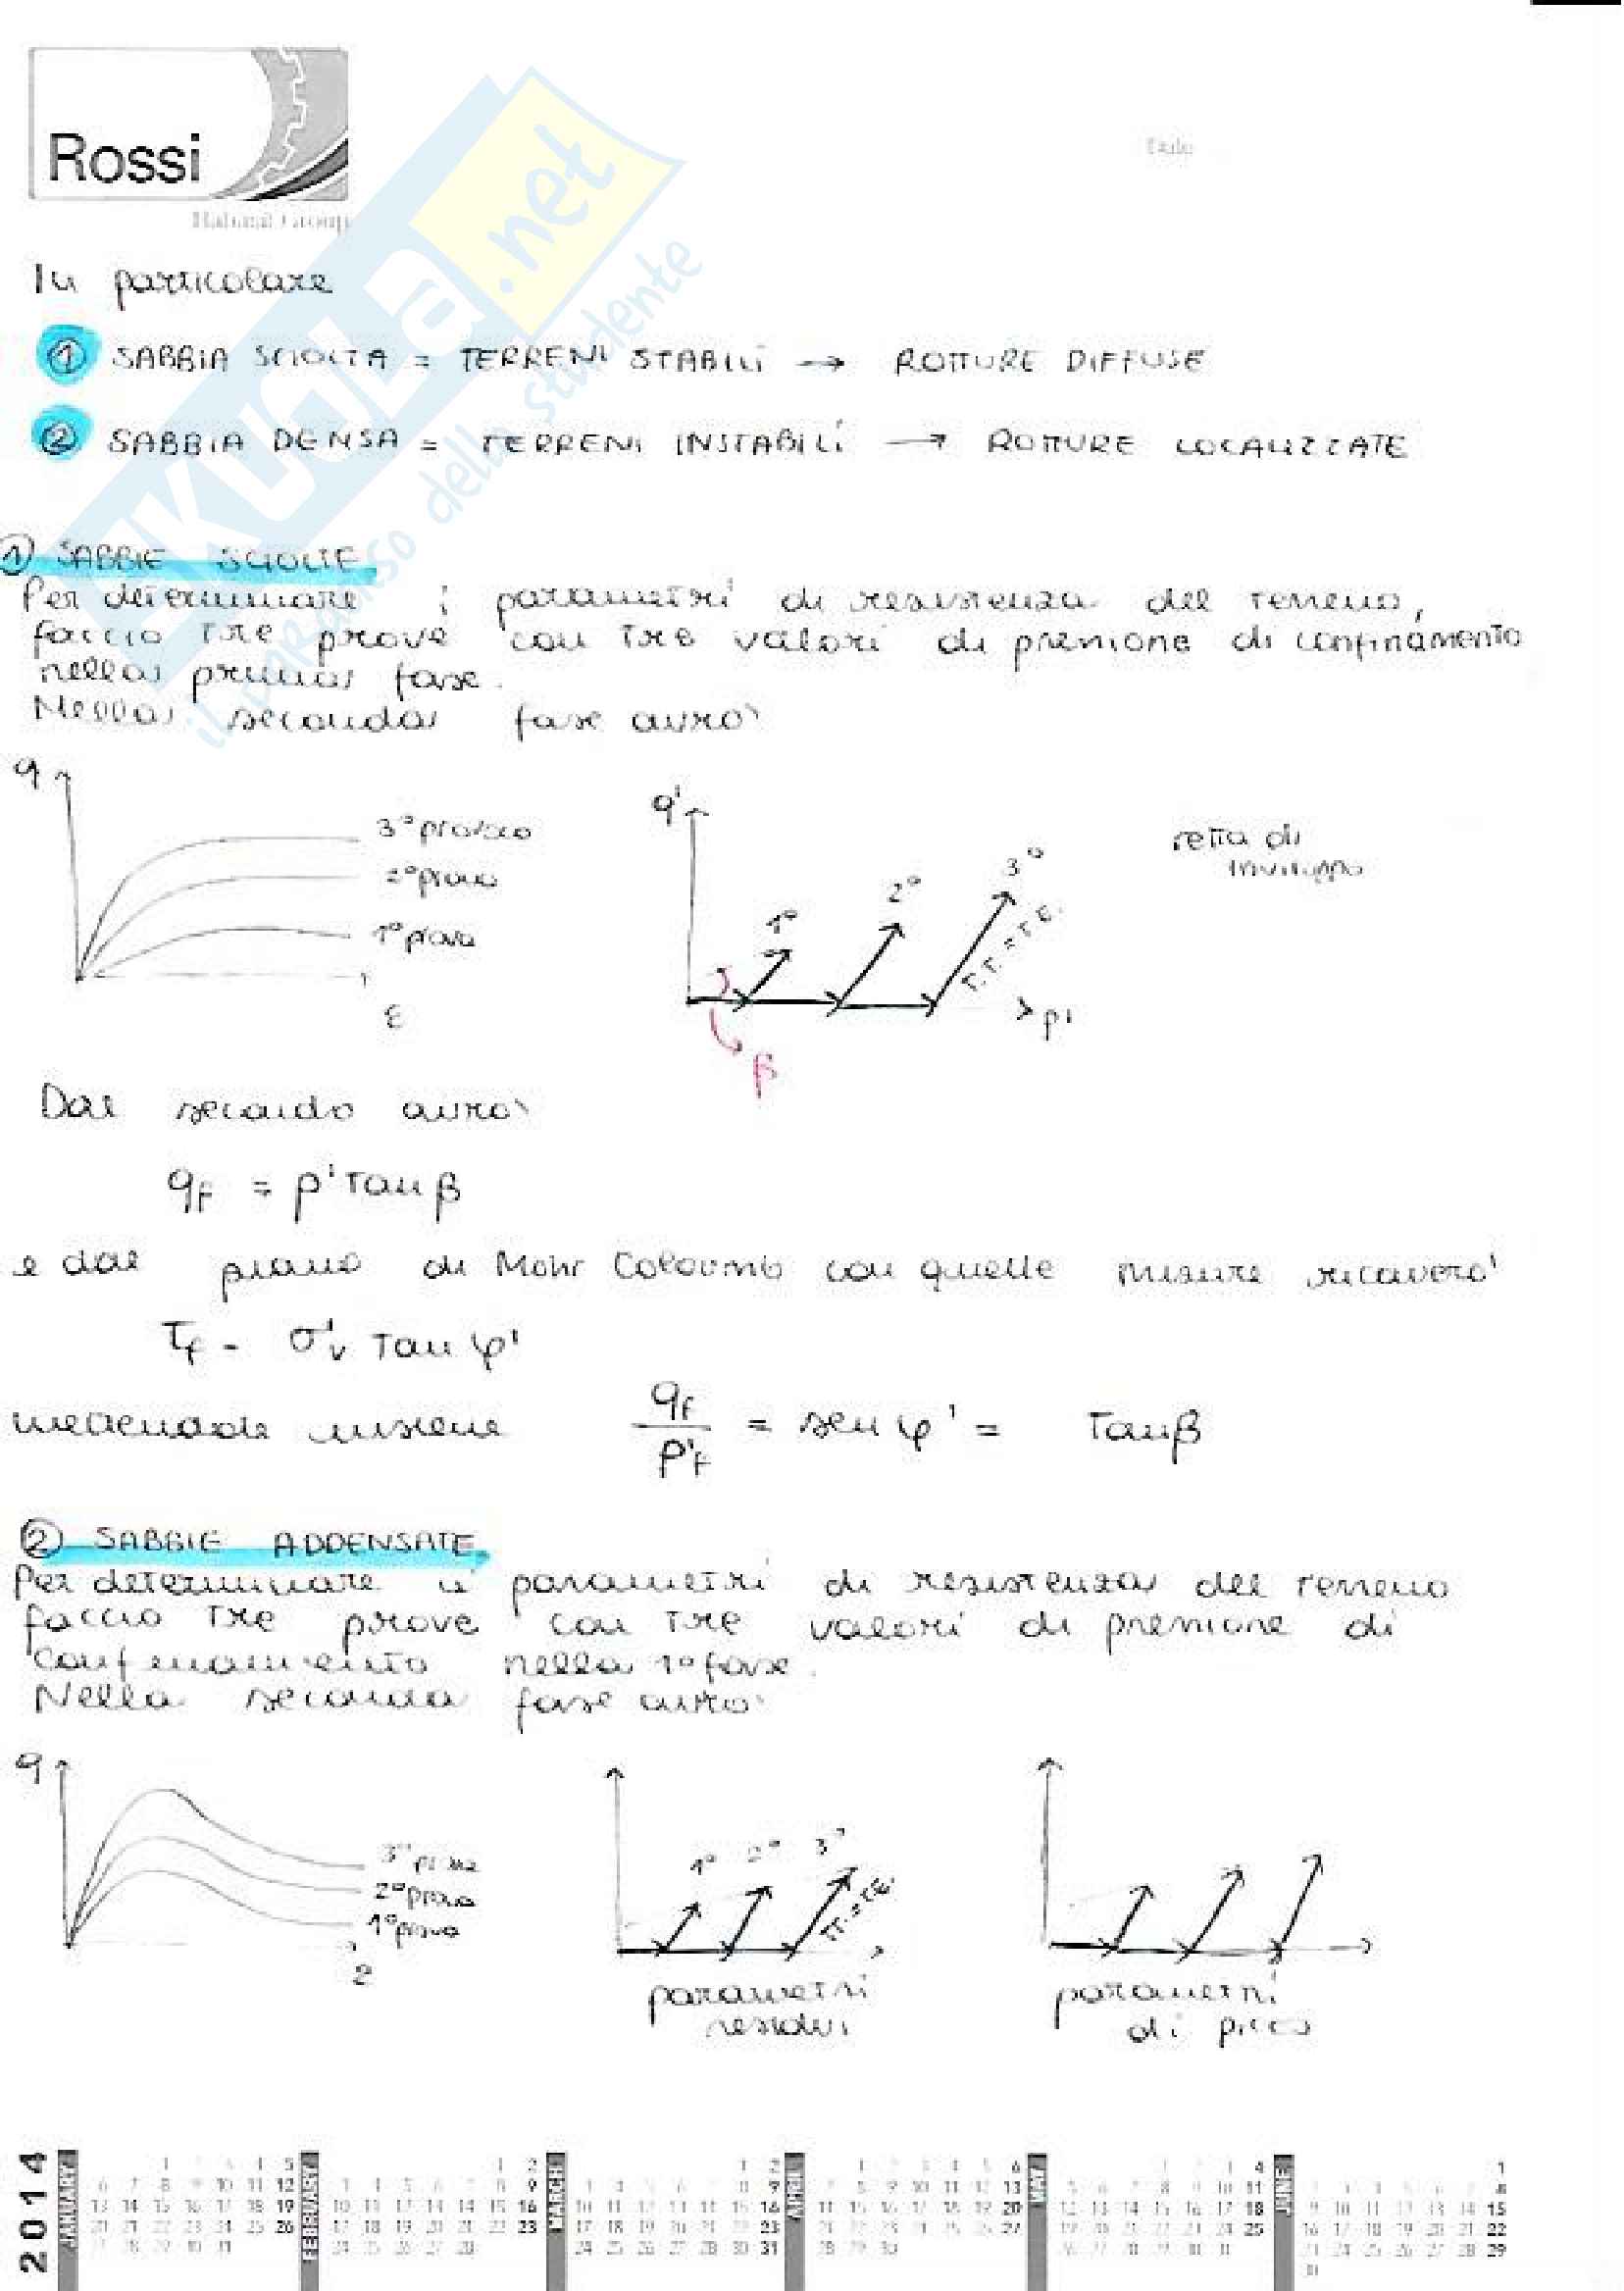 Rossi
Habasit Group
Date
SKUOLA.net
il paradiso dello studente
In particolare
① SABBIA SCIOLTA = TERRENI STABILI → ROTTURE DIFFUSE
② SABBIA DENSA = TERRENI INSTABILI → ROTTURE LOCALIZZATE
① SABBIE SCIOLTE
Per determinare i parametri di resistenza del terreno,
faccio tre prove con tre valori di pressione di confinamento
nella prima fase.
Nella seconda fase avrò
q
3° provino
2° prova
1° prova
ε
q'
1°
2°
3°
T.T. = T.E.
p'
β
retta di
inviluppo
Dal secondo avrò
qf = p' tan β
e dal piano di Mohr Coloumb con quelle misure ricaverò
τf = σ'v tan φ'
mettendole insieme qf / p'f = sen φ' = tan β
② SABBIE ADDENSATE
Per determinare i parametri di resistenza del terreno
faccio tre prove con tre valori di pressione di
confinamento nella 1° fase.
Nella seconda fase avrò
q
3° prova
2° prova
1° prova
ε
1° 2° 3°
T.T. = T.E.
parametri
residui
parametri
di picco
2014
JANUARY
FEBRUARY
MARCH
APRIL
MAY
JUNE